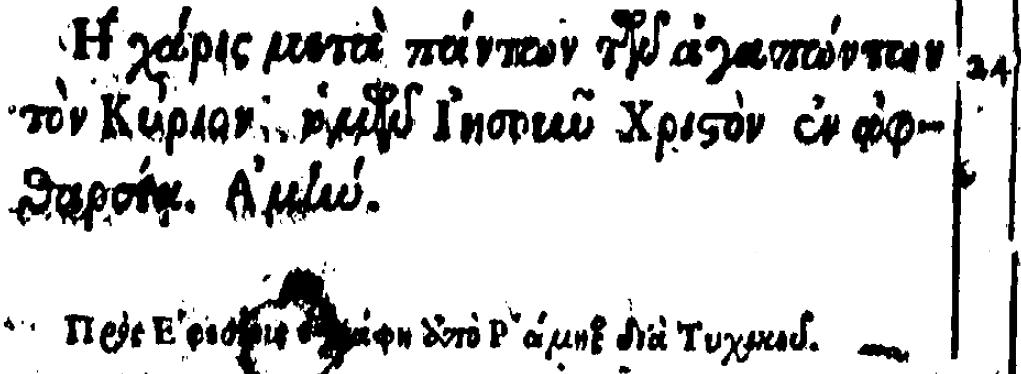 Ἡ χάρις μετὰ πάντων τῶν ἀγαπώντων 24
τὸν Κύριον ἡμῶν Ἰησοῦν Χριστὸν ἐν ἀφ-
θαρσίᾳ. Ἀμήν.
Πρὸς Ἐφεσίους ἐγράφη ἀπὸ Ῥώμης διὰ Τυχικοῦ.